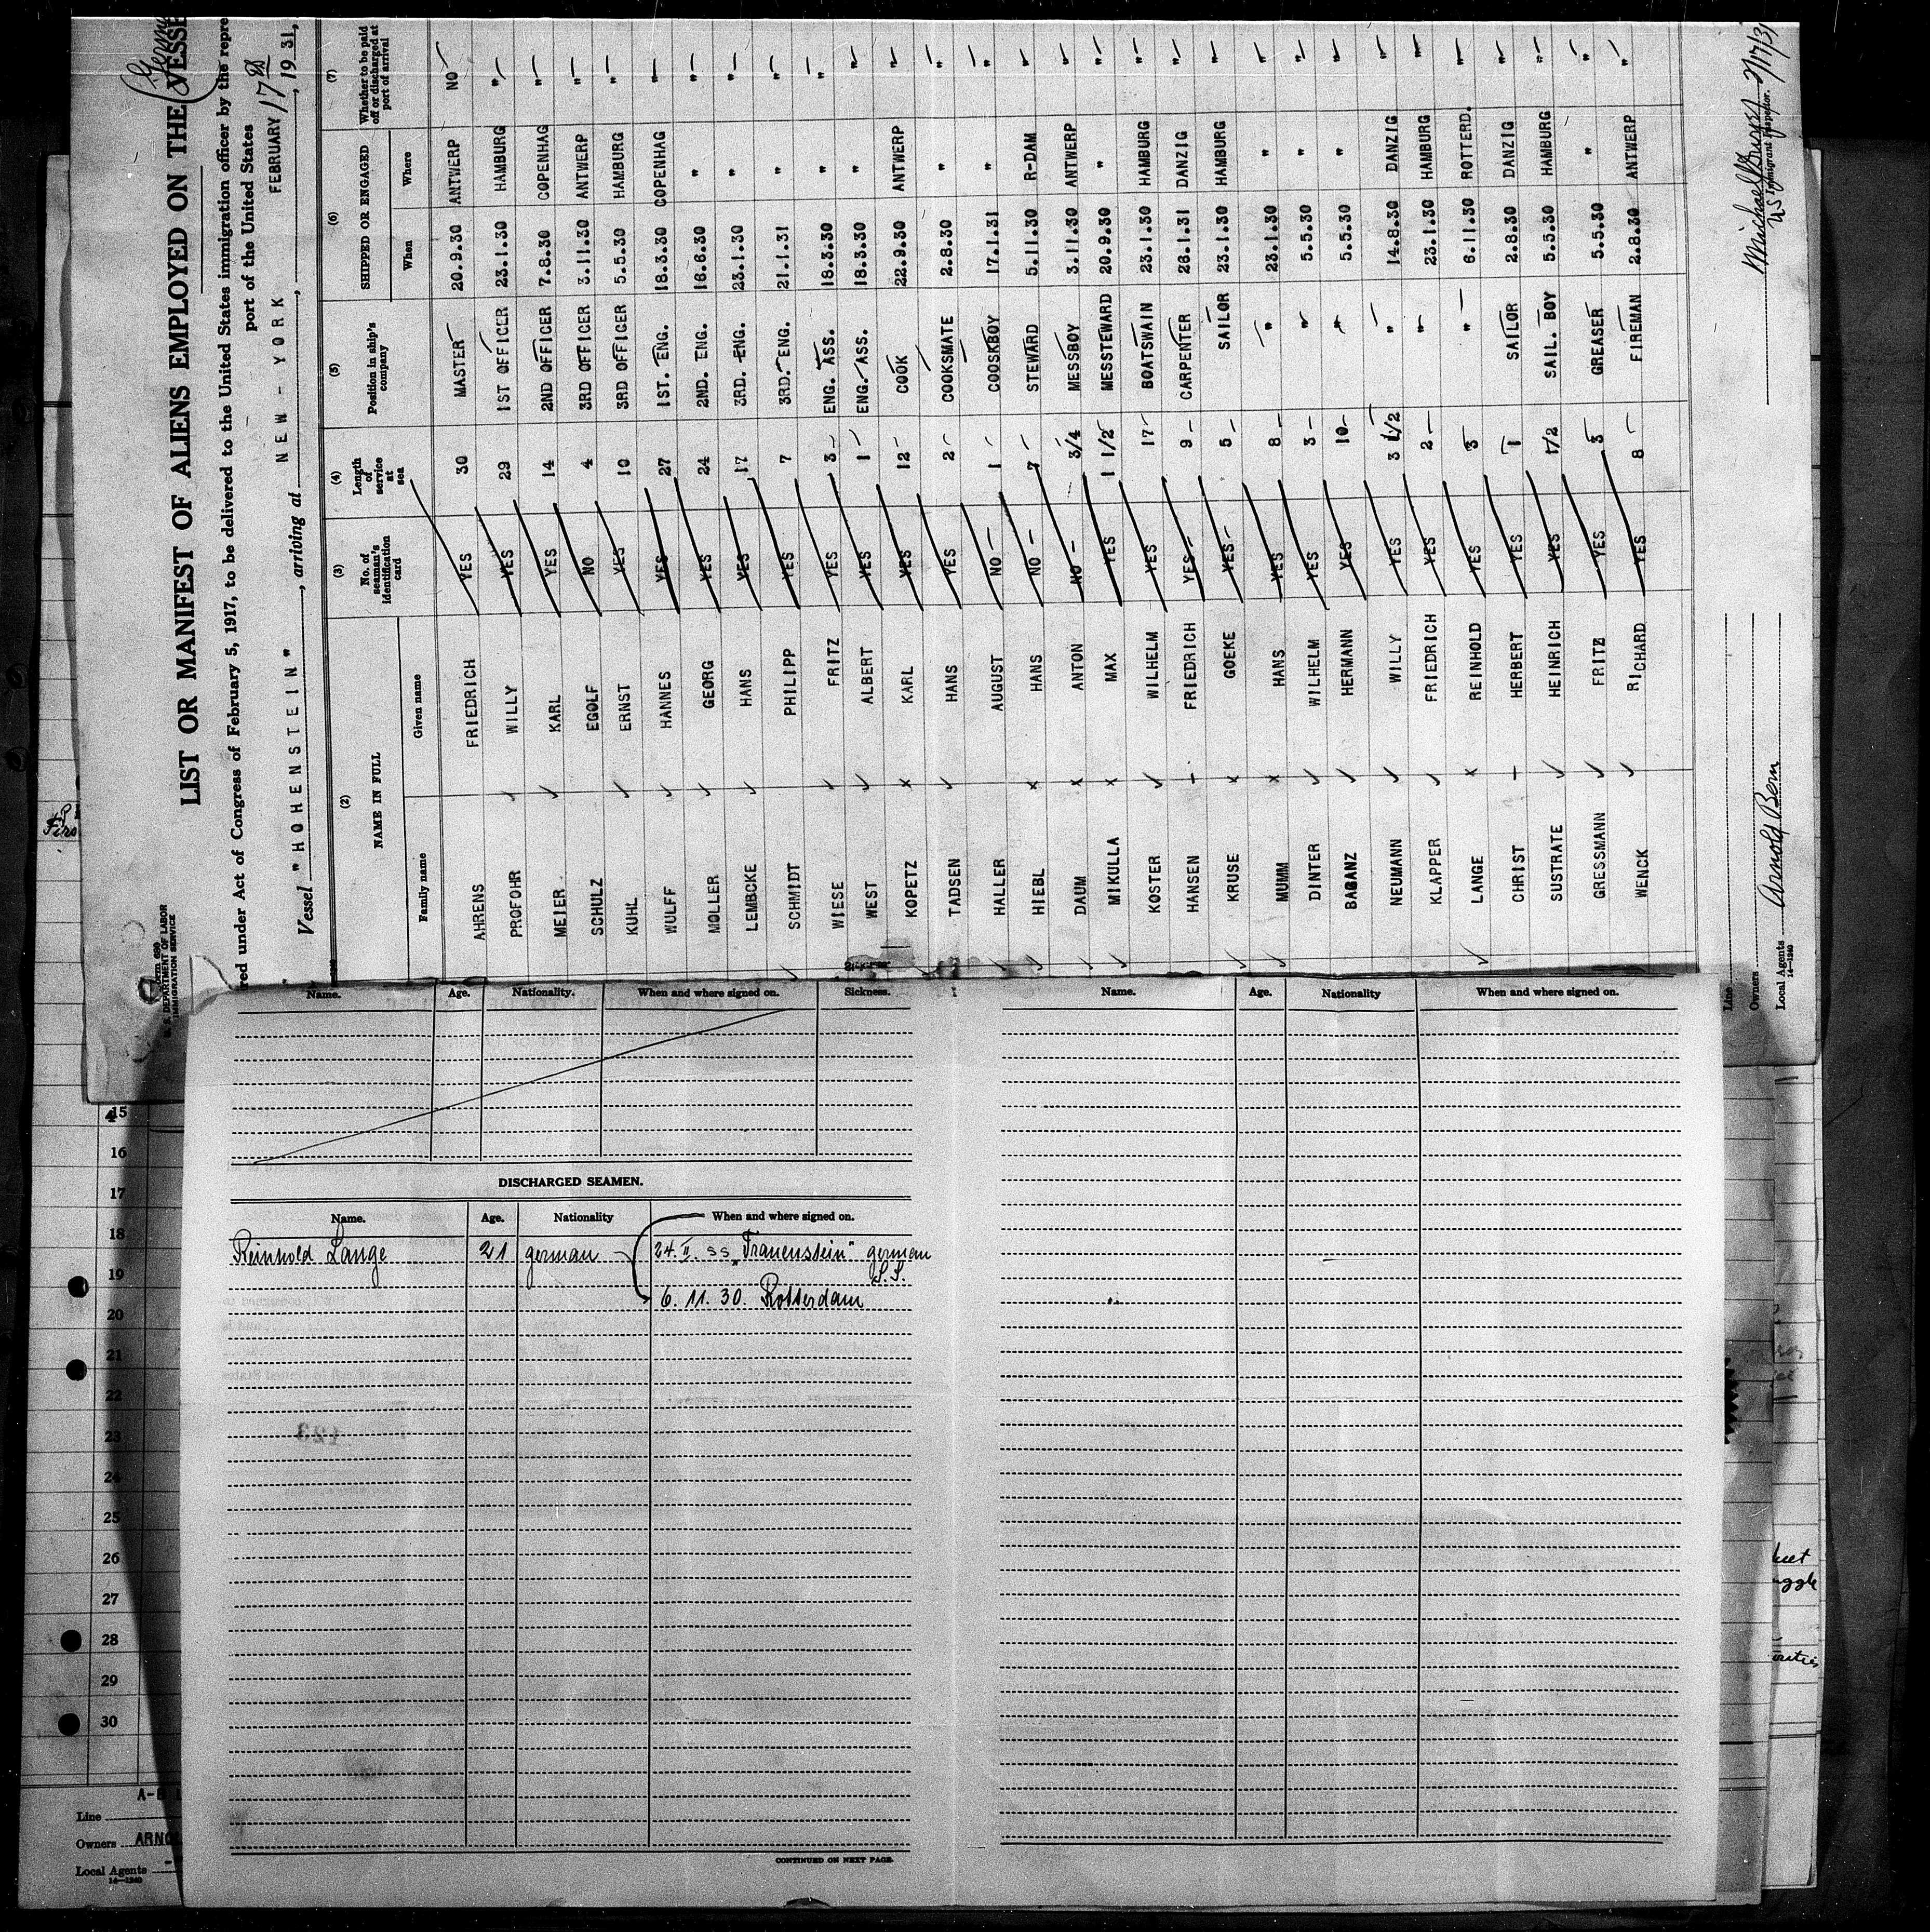 Form 689
U. S. DEPARTMENT OF LABOR
IMMIGRATION SERVICE
LIST OR MANIFEST OF ALIENS EMPLOYED ON THE VESSE
red under Act of Congress of February 5, 1917, to be delivered to the United States immigration officer by the repre
port of the United States
Vessel "HOHENSTEIN", arriving at NEW-YORK, FEBRUARY 17th, 1931,
(2) (3) (4) (5) (6) (7)
NAME IN FULL No. of seaman's identification card Length of service at sea Position in ship's company SHIPPED OR ENGAGED Whether to be paid off or discharged at port of arrival
Family name Given name When Where
AHRENS FRIEDRICH YES 30 MASTER 20.9.30 ANTWERP NO
PROFOHR WILLY YES 29 1ST OFFICER 23.1.30 HAMBURG "
MEIER KARL YES 14 2ND OFFICER 7.8.30 COPENHAG "
SCHULZ EGOLF NO 4 3RD OFFICER 3.11.30 ANTWERP "
KUHL ERNST YES 10 3RD OFFICER 5.5.30 HAMBURG "
WULFF HANNES YES 27 1ST. ENG. 18.3.30 COPENHAG "
MOLLER GEORG YES 24 2ND. ENG. 16.6.30 " "
LEMBCKE HANS YES 17 3RD. ENG. 23.1.30 " "
SCHMIDT PHILIPP YES 7 3RD. ENG. 21.1.31 " "
WIESE FRITZ YES 3 ENG. ASS. 18.3.30 " "
WEST ALBERT YES 1 ENG. ASS. 18.3.30 " "
KOPETZ KARL YES 12 COOK 22.9.30 ANTWERP "
TADSEN HANS YES 2 COOKSMATE 2.8.30 " "
HALLER AUGUST NO 1 COOSKBOY 17.1.31 " "
HIEBL HANS NO 7 STEWARD 5.11.30 R-DAM "
DAUM ANTON NO 3/4 MESSBOY 3.11.30 ANTWERP "
MIKULLA MAX YES 1 1/2 MESSTEWARD 20.9.30 " "
KOSTER WILHELM YES 17 BOATSWAIN 23.1.30 HAMBURG "
HANSEN FRIEDRICH YES 9 CARPENTER 26.1.31 DANZIG "
KRUSE GOEKE YES 5 SAILOR 23.1.30 HAMBURG "
MUMM HANS YES 8 " 23.1.30 " "
DINTER WILHELM YES 3 " 5.5.30 " "
BAGANZ HERMANN YES 10 " 5.5.30 " "
NEUMANN WILLY YES 3 1/2 " 14.8.30 DANZIG "
KLAPPER FRIEDRICH YES 2 " 23.1.30 HAMBURG "
LANGE REINHOLD YES 3 " 6.11.30 ROTTERD. "
CHRIST HERBERT YES 1 SAILOR 2.8.30 DANZIG "
SUSTRATE HEINRICH YES 1/2 SAIL. BOY 5.5.30 HAMBURG "
GRESSMANN FRITZ YES 3 GREASER 5.5.30 " "
WENCK RICHARD YES 8 FIREMAN 2.8.30 ANTWERP "
Line
Owners
Local Agents Arnold Bern
14—1240
2/17/31
Immigrant Inspector.
Name. Age. Nationality. When and where signed on. Sickness.
DISCHARGED SEAMEN.
Name. Age. Nationality When and where signed on.
Reinhold Lange 21 german 24. II. SS "Frauenstein" german
S.S.
6. 11. 30. Rotterdam
CONTINUED ON NEXT PAGE.
Name. Age. Nationality When and where signed on.
15
16
17
18
19
20
21
22
23
24
25
26
27
28
29
30
Line
Owners ARNO
Local Agents
14—1240